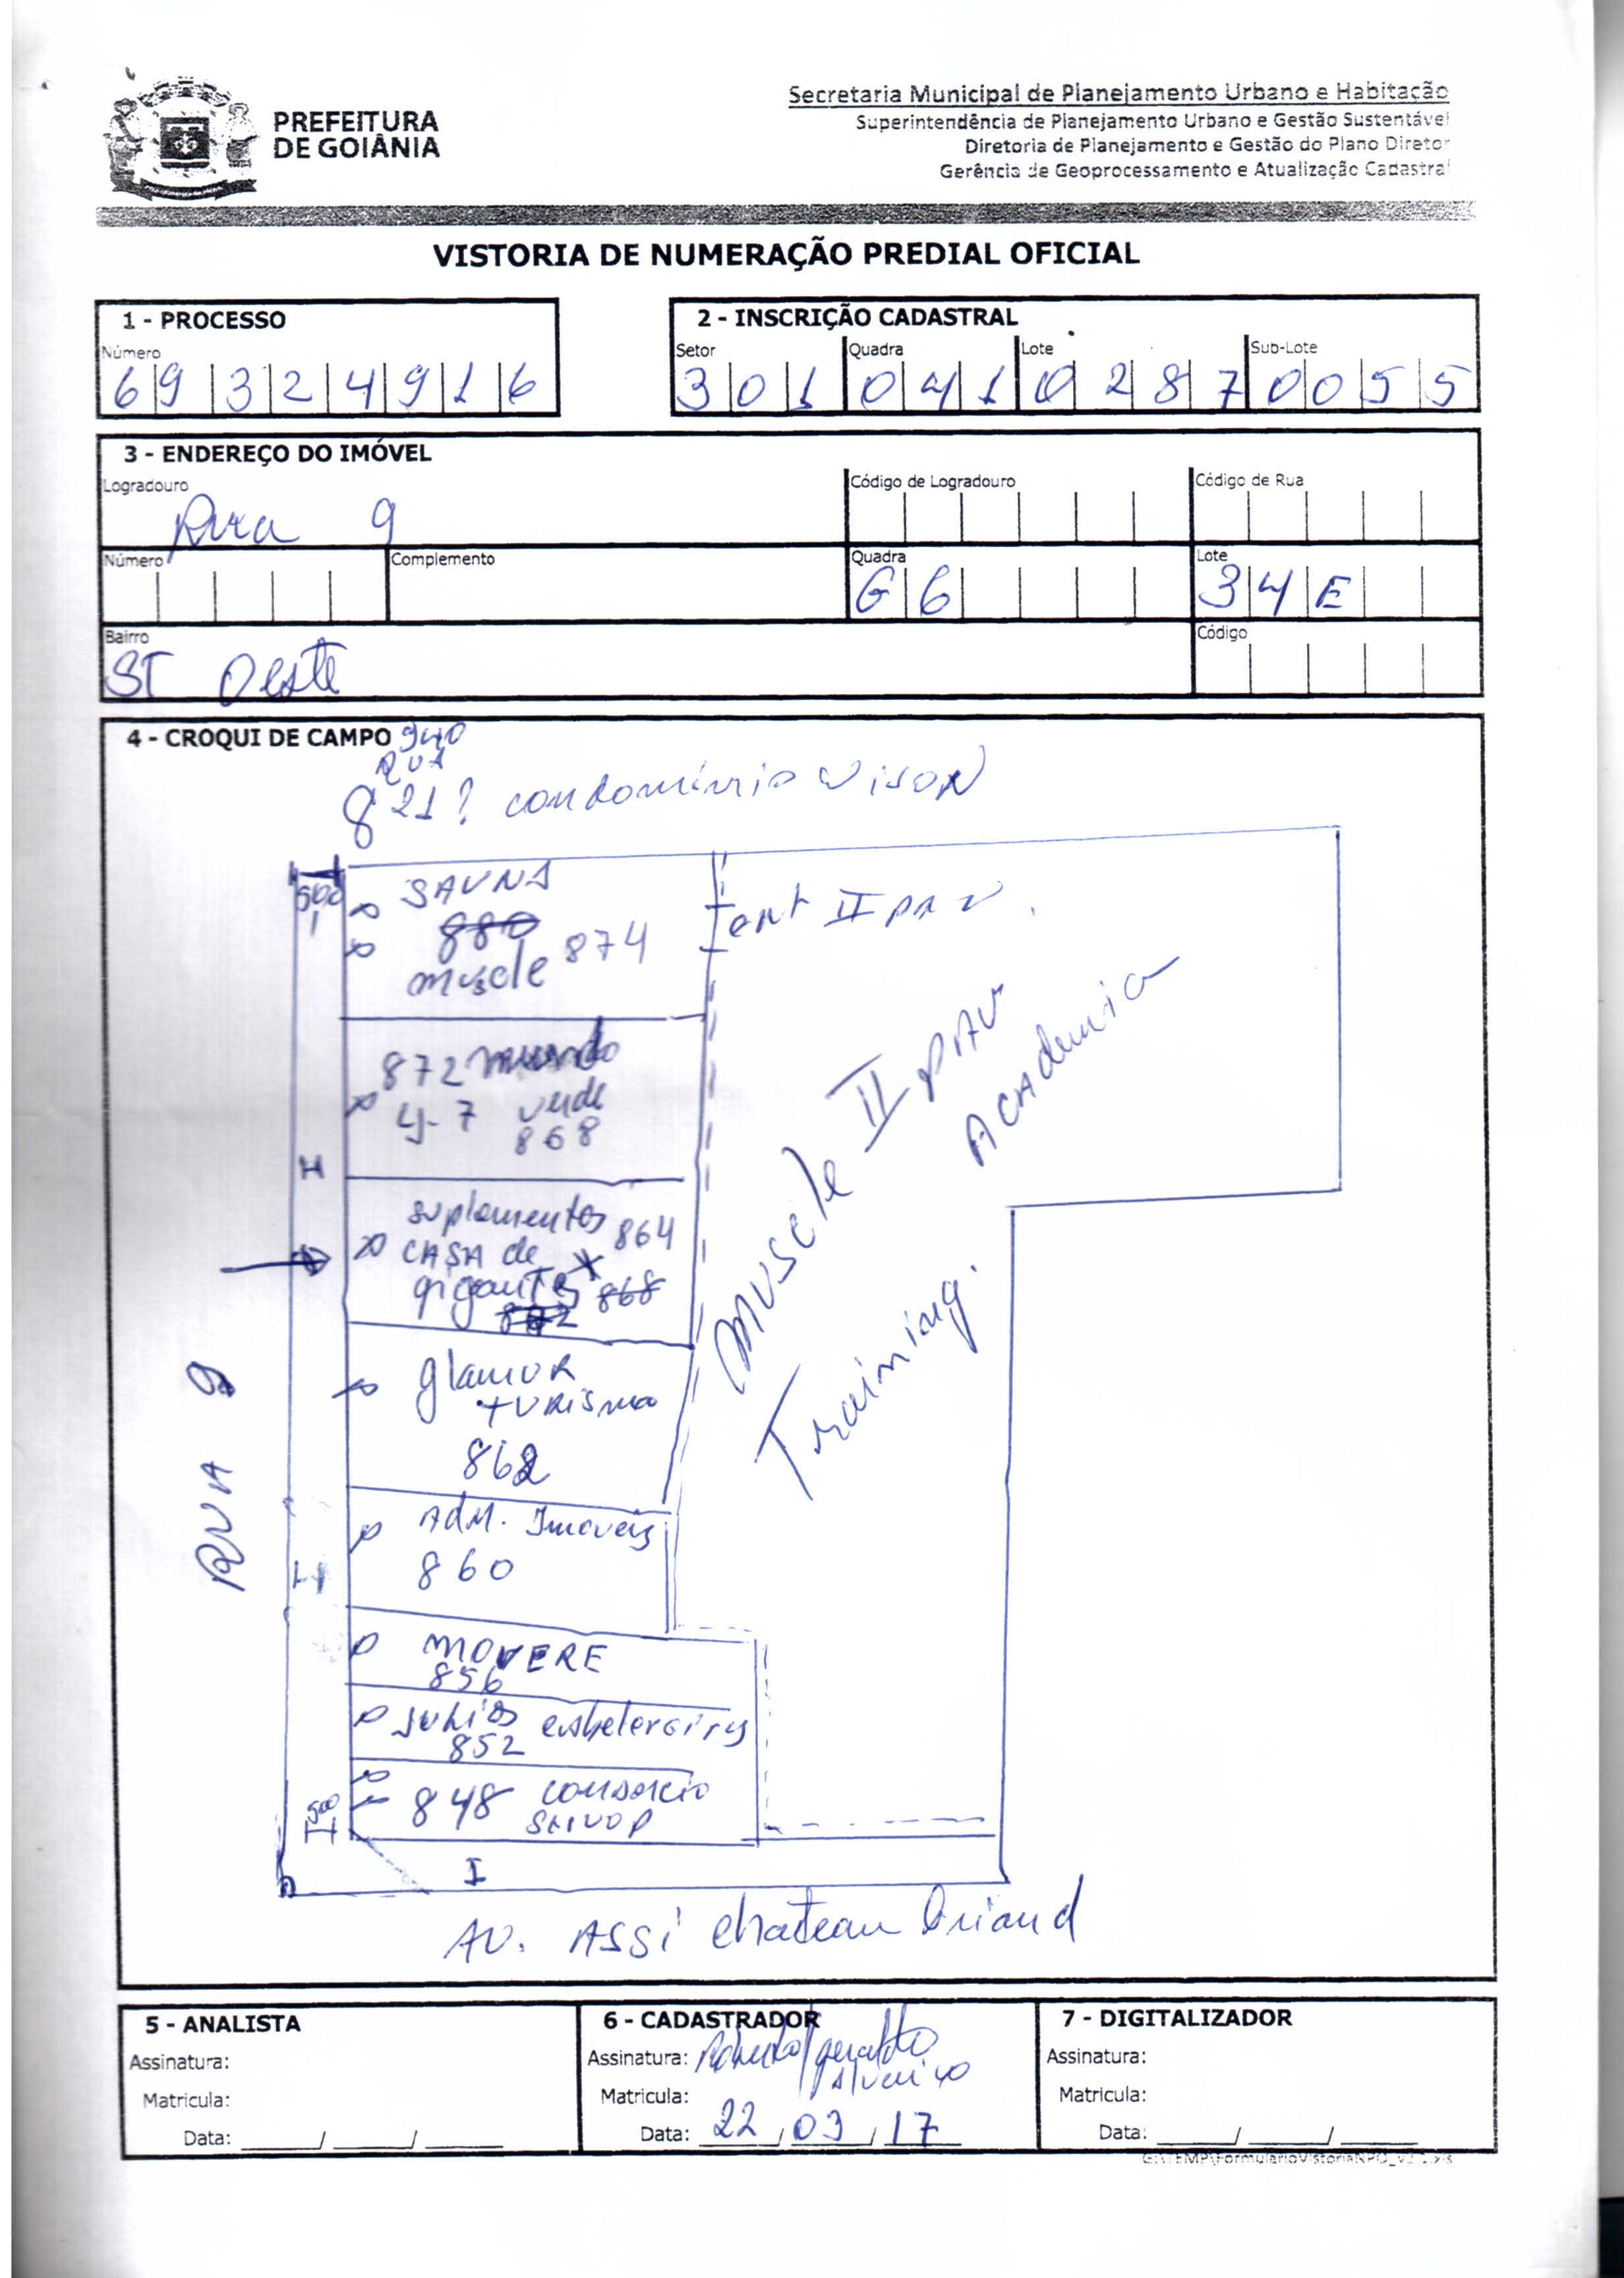 PREFEITURA
DE GOIÂNIA
Secretaria Municipal de Planejamento Urbano e Habitação
Superintendência de Planejamento Urbano e Gestão Sustentável
Diretoria de Planejamento e Gestão do Plano Diretor
Gerência de Geoprocessamento e Atualização Cadastral
VISTORIA DE NUMERAÇÃO PREDIAL OFICIAL
1 - PROCESSO
Número
69324916
2 - INSCRIÇÃO CADASTRAL
Setor Quadra Lote Sub-Lote
301 041 0287 0055
3 - ENDEREÇO DO IMÓVEL
Logradouro Código de Logradouro Código de Rua
Rua 9
Número Complemento Quadra Lote
G6 34E
Bairro Código
ST Oeste
4 - CROQUI DE CAMPO 940
RUA
821? condomínio
SAUNA
880
muscle 874
II pav.
872 mundo
verde
868
suplementos 864
CASA de
gigantes 868
glamuR
turismo
862
Adm. Imoveis
860
MOVERE
856
852
848 consorcio
Muscle II pAV
Academia
Training.
RUA 9
AV. Assi chateau briand
5 - ANALISTA
Assinatura:
Matricula:
Data: ____/____/____
6 - CADASTRADOR
Assinatura:
Matricula:
Data: 22/03/17
7 - DIGITALIZADOR
Assinatura:
Matricula:
Data: ____/____/____